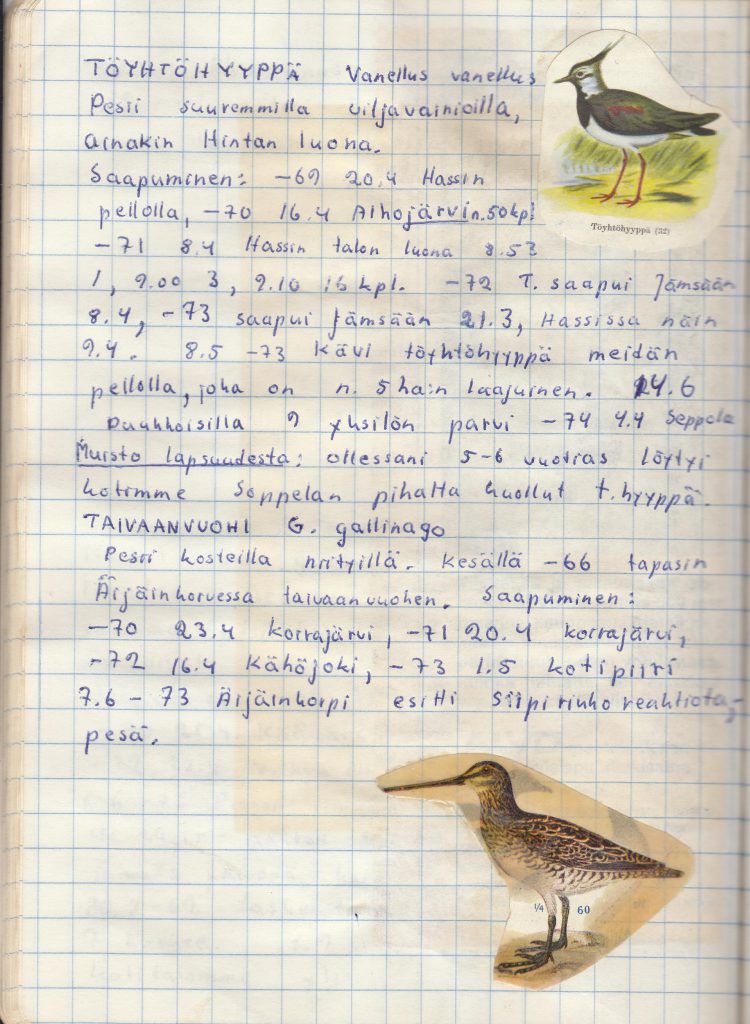 TÖYHTÖHYYPPÄ Vanellus vanellus
Pesii suuremmilla viljavainioilla,
ainakin Hintan luona.
Saapuminen: -69 20.4 Hassin
pellolla, -70 16.4 Alhojärvi n. 50 kpl
Töyhtöhyyppä (32)
-71 8.4 Hassin talon luona 8.53
1, 9.00 3, 9.10 16 kpl. -72 T. saapui Jämsään
8.4, -73 saapui Jämsään 21.3, Hassissa näin
9.4. 8.5 -73 kävi töyhtöhyyppä meidän
pellolla, joka on n. 5 ha:n laajuinen. 14.6
9 yksilön parvi -74 4.4 Seppola
Muisto lapsuudesta: ollessani 5-6 vuotias löytyi
kotimme Soppelan pihalta kuollut t.hyyppä.
TAIVAANVUOHI G. gallinago
Pesii kosteilla niityillä. Kesällä -66 tapasin
Äijäinkorvessa taivaanvuohen. Saapuminen:
-70 23.4 Korrajärvi, -71 20.4 Korrajärvi,
-72 16.4 Kähöjoki, -73 1.5 kotipiiri
7.6 -73 Äijäinkorpi esitti siipirikko reaktiota,
pesä.
1/4 60